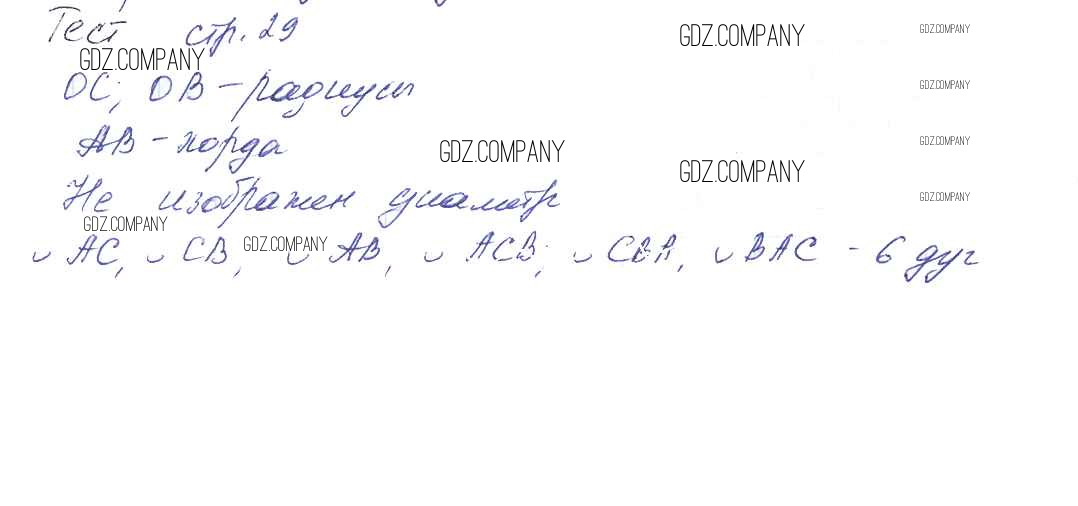 Тест стр. 29
GDZ.COMPANY GDZ.COMPANY
GDZ.COMPANY
OC, OB - радиусы GDZ.COMPANY
AB - хорда GDZ.COMPANY GDZ.COMPANY
GDZ.COMPANY
Не изображен диаметр GDZ.COMPANY
GDZ.COMPANY GDZ.COMPANY
◡ AC, ◡ CB, ◡ AB, ◡ ACB, ◡ CBA, ◡ BAC - 6 дуг